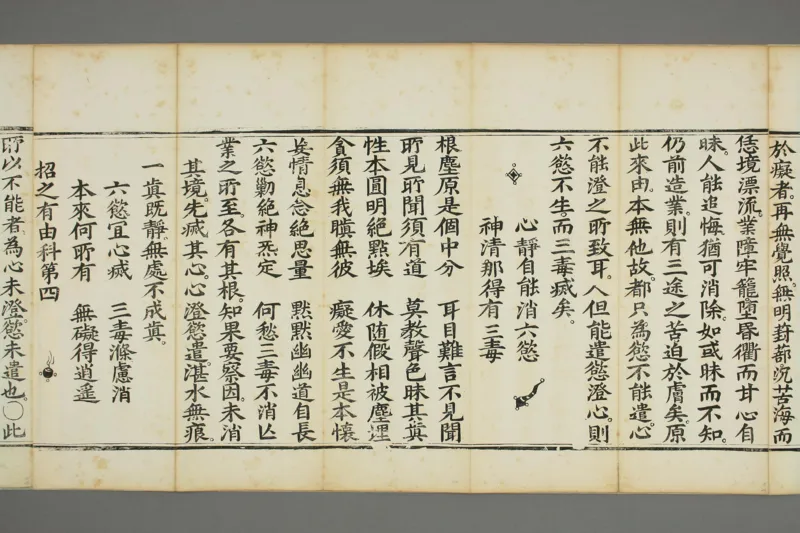 於癡者。再無覺照。無明葑都沉苦海而
恁境漂流。業障牢籠墮昏衢而甘心自
昧。人能追悔猶可消除。如或昧而不知。
仍前造業。則有三途之苦迫於膚矣。原
此來由。本無他故。都只為慾不能遣。心
不能澄之所致耳。人但能遣慾澄心。則
六慾不生。而三毒滅矣。
心靜自能消六慾
神清那得有三毒
根塵原是個中分　耳目難言不見聞
所見所聞須有道　莫教聲色昧其真
性本圓明絕點埃　休随假相被塵埋
貪須無我瞋無彼　癡愛不生是本懷
妄情息念絕思量　黙黙幽幽道自長
六慾勦絕神炁定　何愁三毒不消亾
業之所至。各有其根。知果要察因。未消
其境。先滅其心。心澄慾遣湛水無痕。
一真既靜無處不成真。
六慾宜心滅　三毒滌慮消
本來何所有　無礙得逍遥
招之有由科第四
所以不能者。為心未澄。慾未遣也。〇此